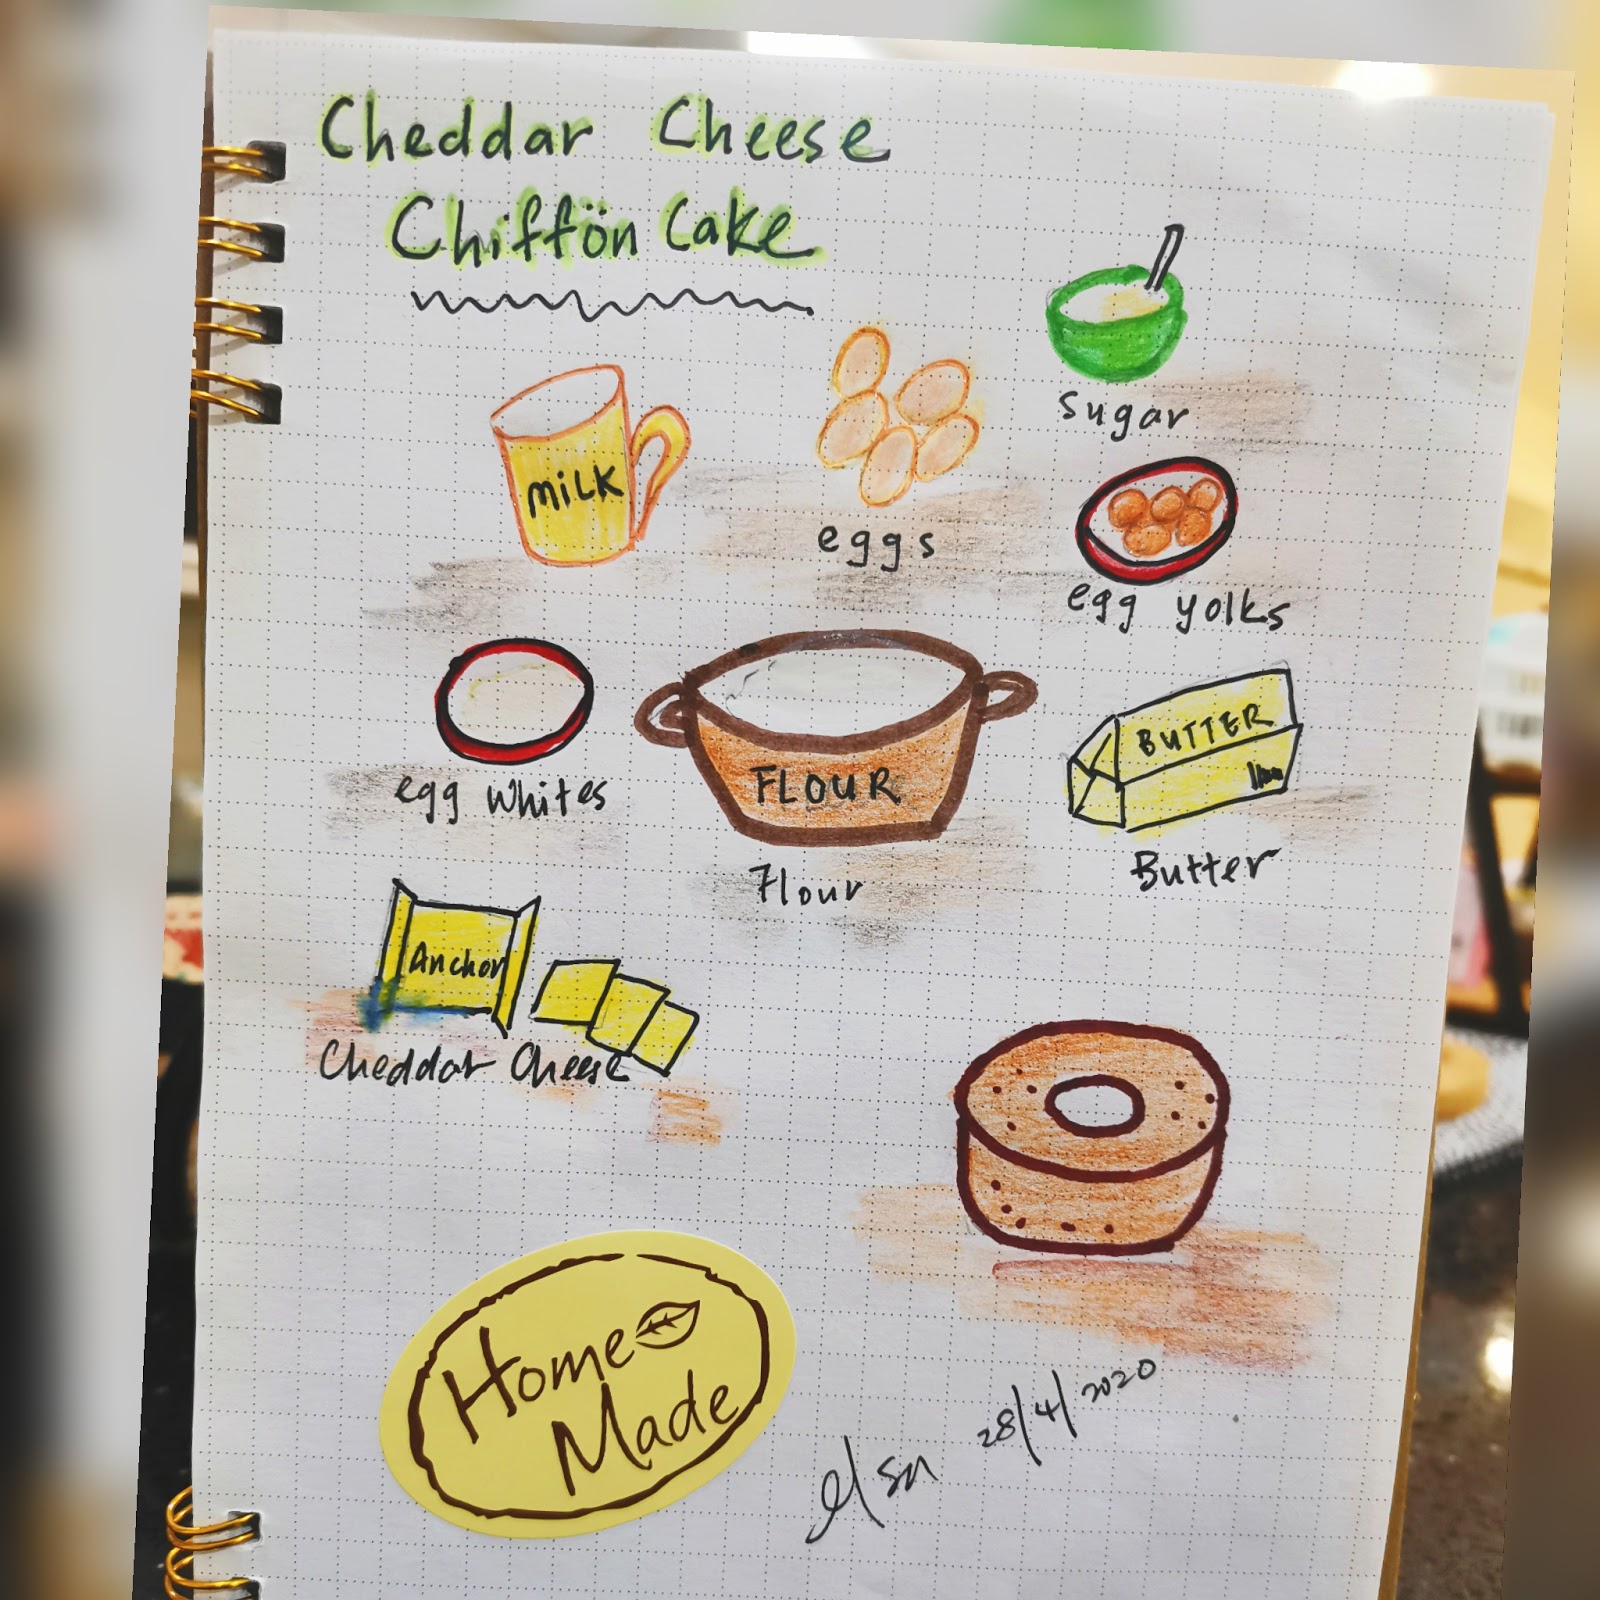 Cheddar Cheese
Chiffön Cake
sugar
MiLK
eggs
egg yolks
egg whites
FLOUR
Flour
BUTTER
Butter
Anchor
Cheddar Cheese
Home
Made
elsa 28/4/2020